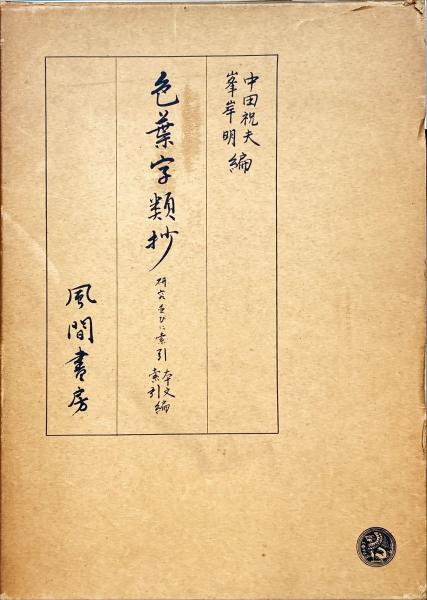 中田祝夫
峯岸明 編
色葉字類抄 研究並びに索引 本文 索引 編
風間書房